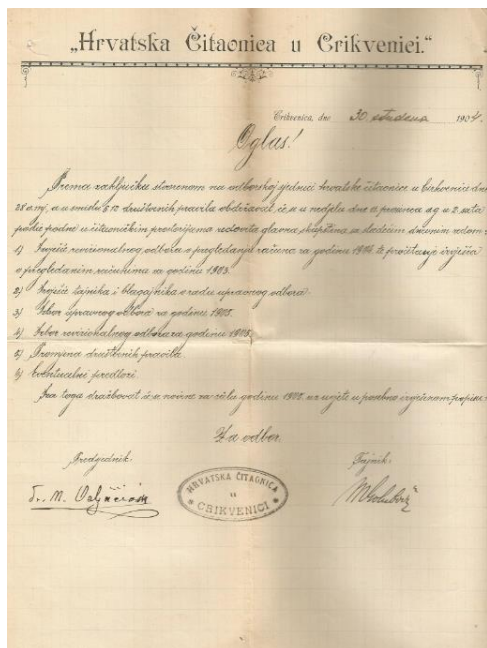 „Hrvatska Čitaonica u Crikvenici.“
Crikvenica, dne 30 studena 1904
Oglas!
Prema zaključku stvorenom na odborskoj sjednici hrvatske čitaonice u Crikvenici dne
28 o. mj, a u smislu § 10 društvenih pravila obdržavat će se u nedjelju dne 4 prosinca o.g u 2. sata
poslije podne u čitaoničkim prostorijama redovita glavna skupština sa sledećim dnevnim redom:
1) Izvješće revizionalnog odbora o pregledanju računa za godinu 1904. te pročitanje izvješća
o pregledanim računima za godinu 1903.
2) Izvješće tajnika i blagajnika o radu upravnog odbora.
3) Izbor upravnog odbora za godinu 1905.
4) Izbor revizionalnog odbora za godinu 1905.
5) Promjena društvenih pravila.
6) Eventualni predlozi.
Iza toga dražbovat će se novine za cielu godinu 1905. uz uvjete u posebno izvješenom popisu.
Za odbor.
Predsjednik: Tajnik:
dr. M.
HRVATSKA ČITAONICA
u
CRIKVENICI